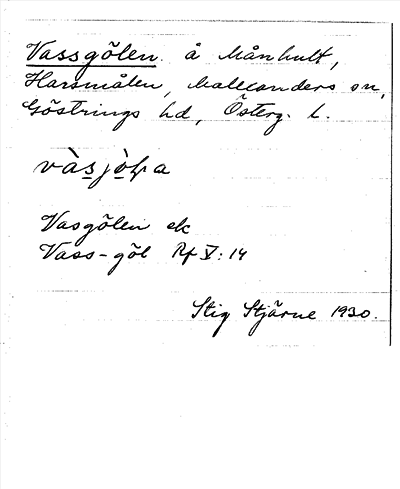 Vassgölen å Månhult,
Harsmålen, Malexanders sn,
Göstrings hd, Österg. l.
vàsjòɫa
Vasgölen ek
Vass-göl Rf V:14
Stig Stjärne 1930.